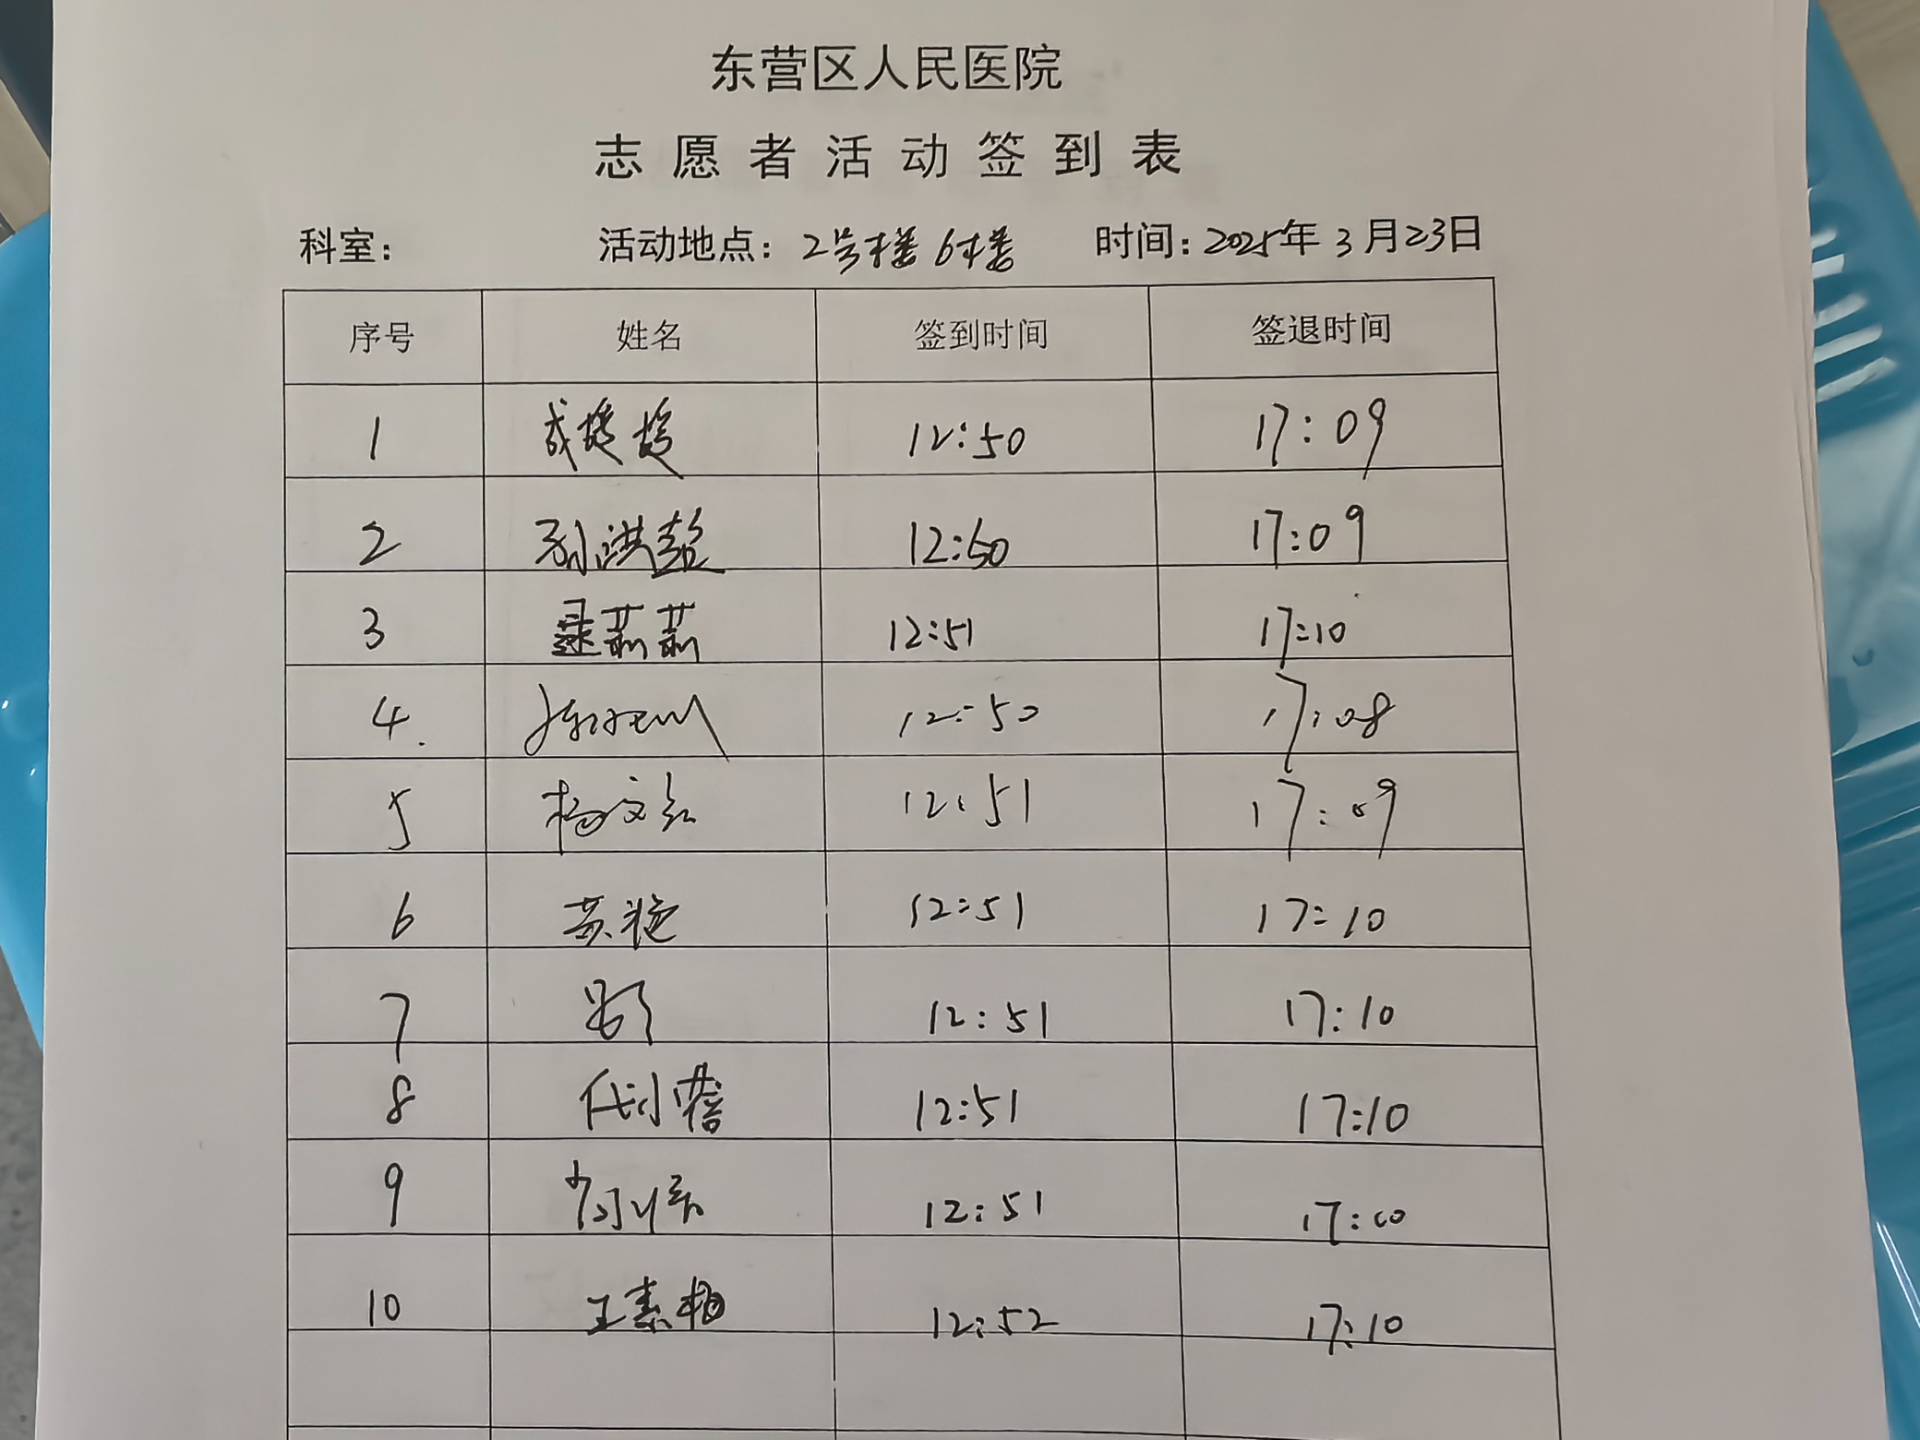 东营区人民医院
志愿者活动签到表
科室： 活动地点：2号楼6楼 时间：2025年3月23日
序号 姓名 签到时间 签退时间
1 12:50 17:09
2 孙洪 12:50 17:09
3 聂茹茹 12:51 17:10
4. 12:50 17:08
5 杨文 12:51 17:09
6 苏艳 12:51 17:10
7 12:51 17:10
8 代小蓓 12:51 17:10
9 12:51 17:10
10 王素梅 12:52 17:10